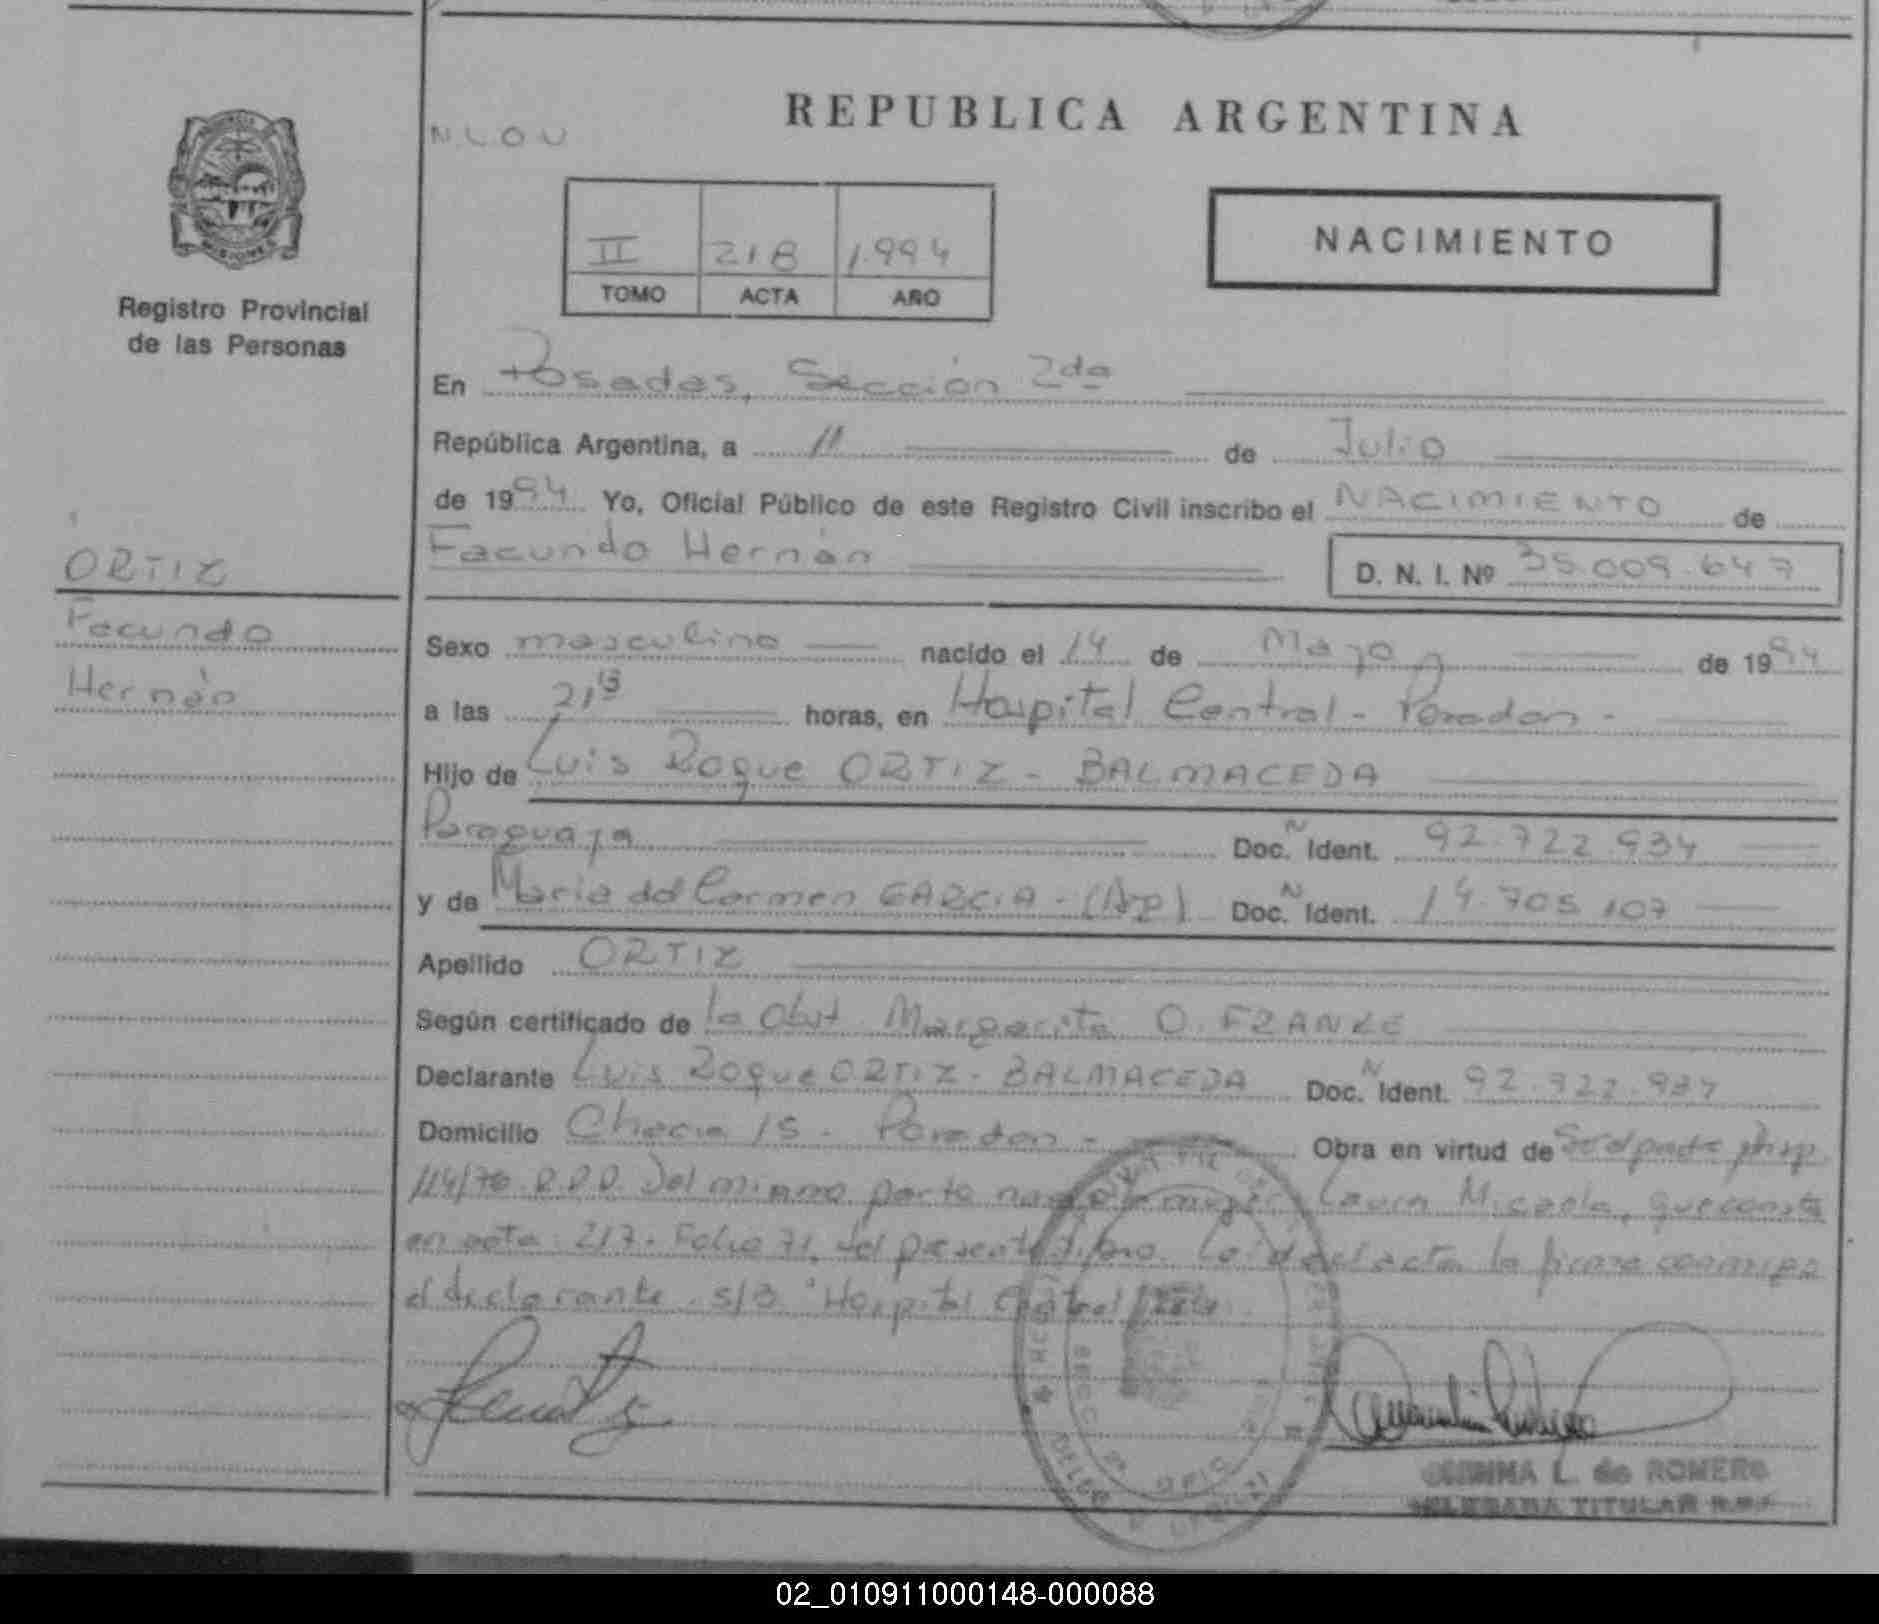 REPUBLICA ARGENTINA
N.L.O.U
II 218 1.994
TOMO ACTA AÑO
NACIMIENTO
Registro Provincial
de las Personas
En Posadas, Sección 2da
República Argentina, a 11 de Julio
de 1994 Yo, Oficial Público de este Registro Civil inscribo el NACIMIENTO de
Facundo Hernán D. N. I. Nº 35.009.647
ORTIZ
Facundo
Hernán
Sexo masculino nacido el 14 de Mayo de 1994
a las 21 15 horas, en Hospital Central - Posadas -
Hijo de Luis Roque ORTIZ - BALMACEDA
Paraguaya Doc. N Ident. 92.722.934
y de Maria del Carmen GARCIA - (Arg) Doc. N Ident. 14.705.107
Apellido ORTIZ
Según certificado de la Obst Margarita O. FRANKE
Declarante Luis Roque ORTIZ - BALMACEDA Doc. N Ident. 92.722.934
Domicilio Chacra 15 - Posadas - Obra en virtud de
114/76 R.P.P. Del mismo parto nació la mujer, Laura Micaela, que consta
en acta 217. Folio 71, del presente tomo. Leída el acta la firma conmigo
el declarante. S/B "Hospital Central
L. de ROMERO
DELEGADA TITULAR R.P.P.
02_010911000148-000088